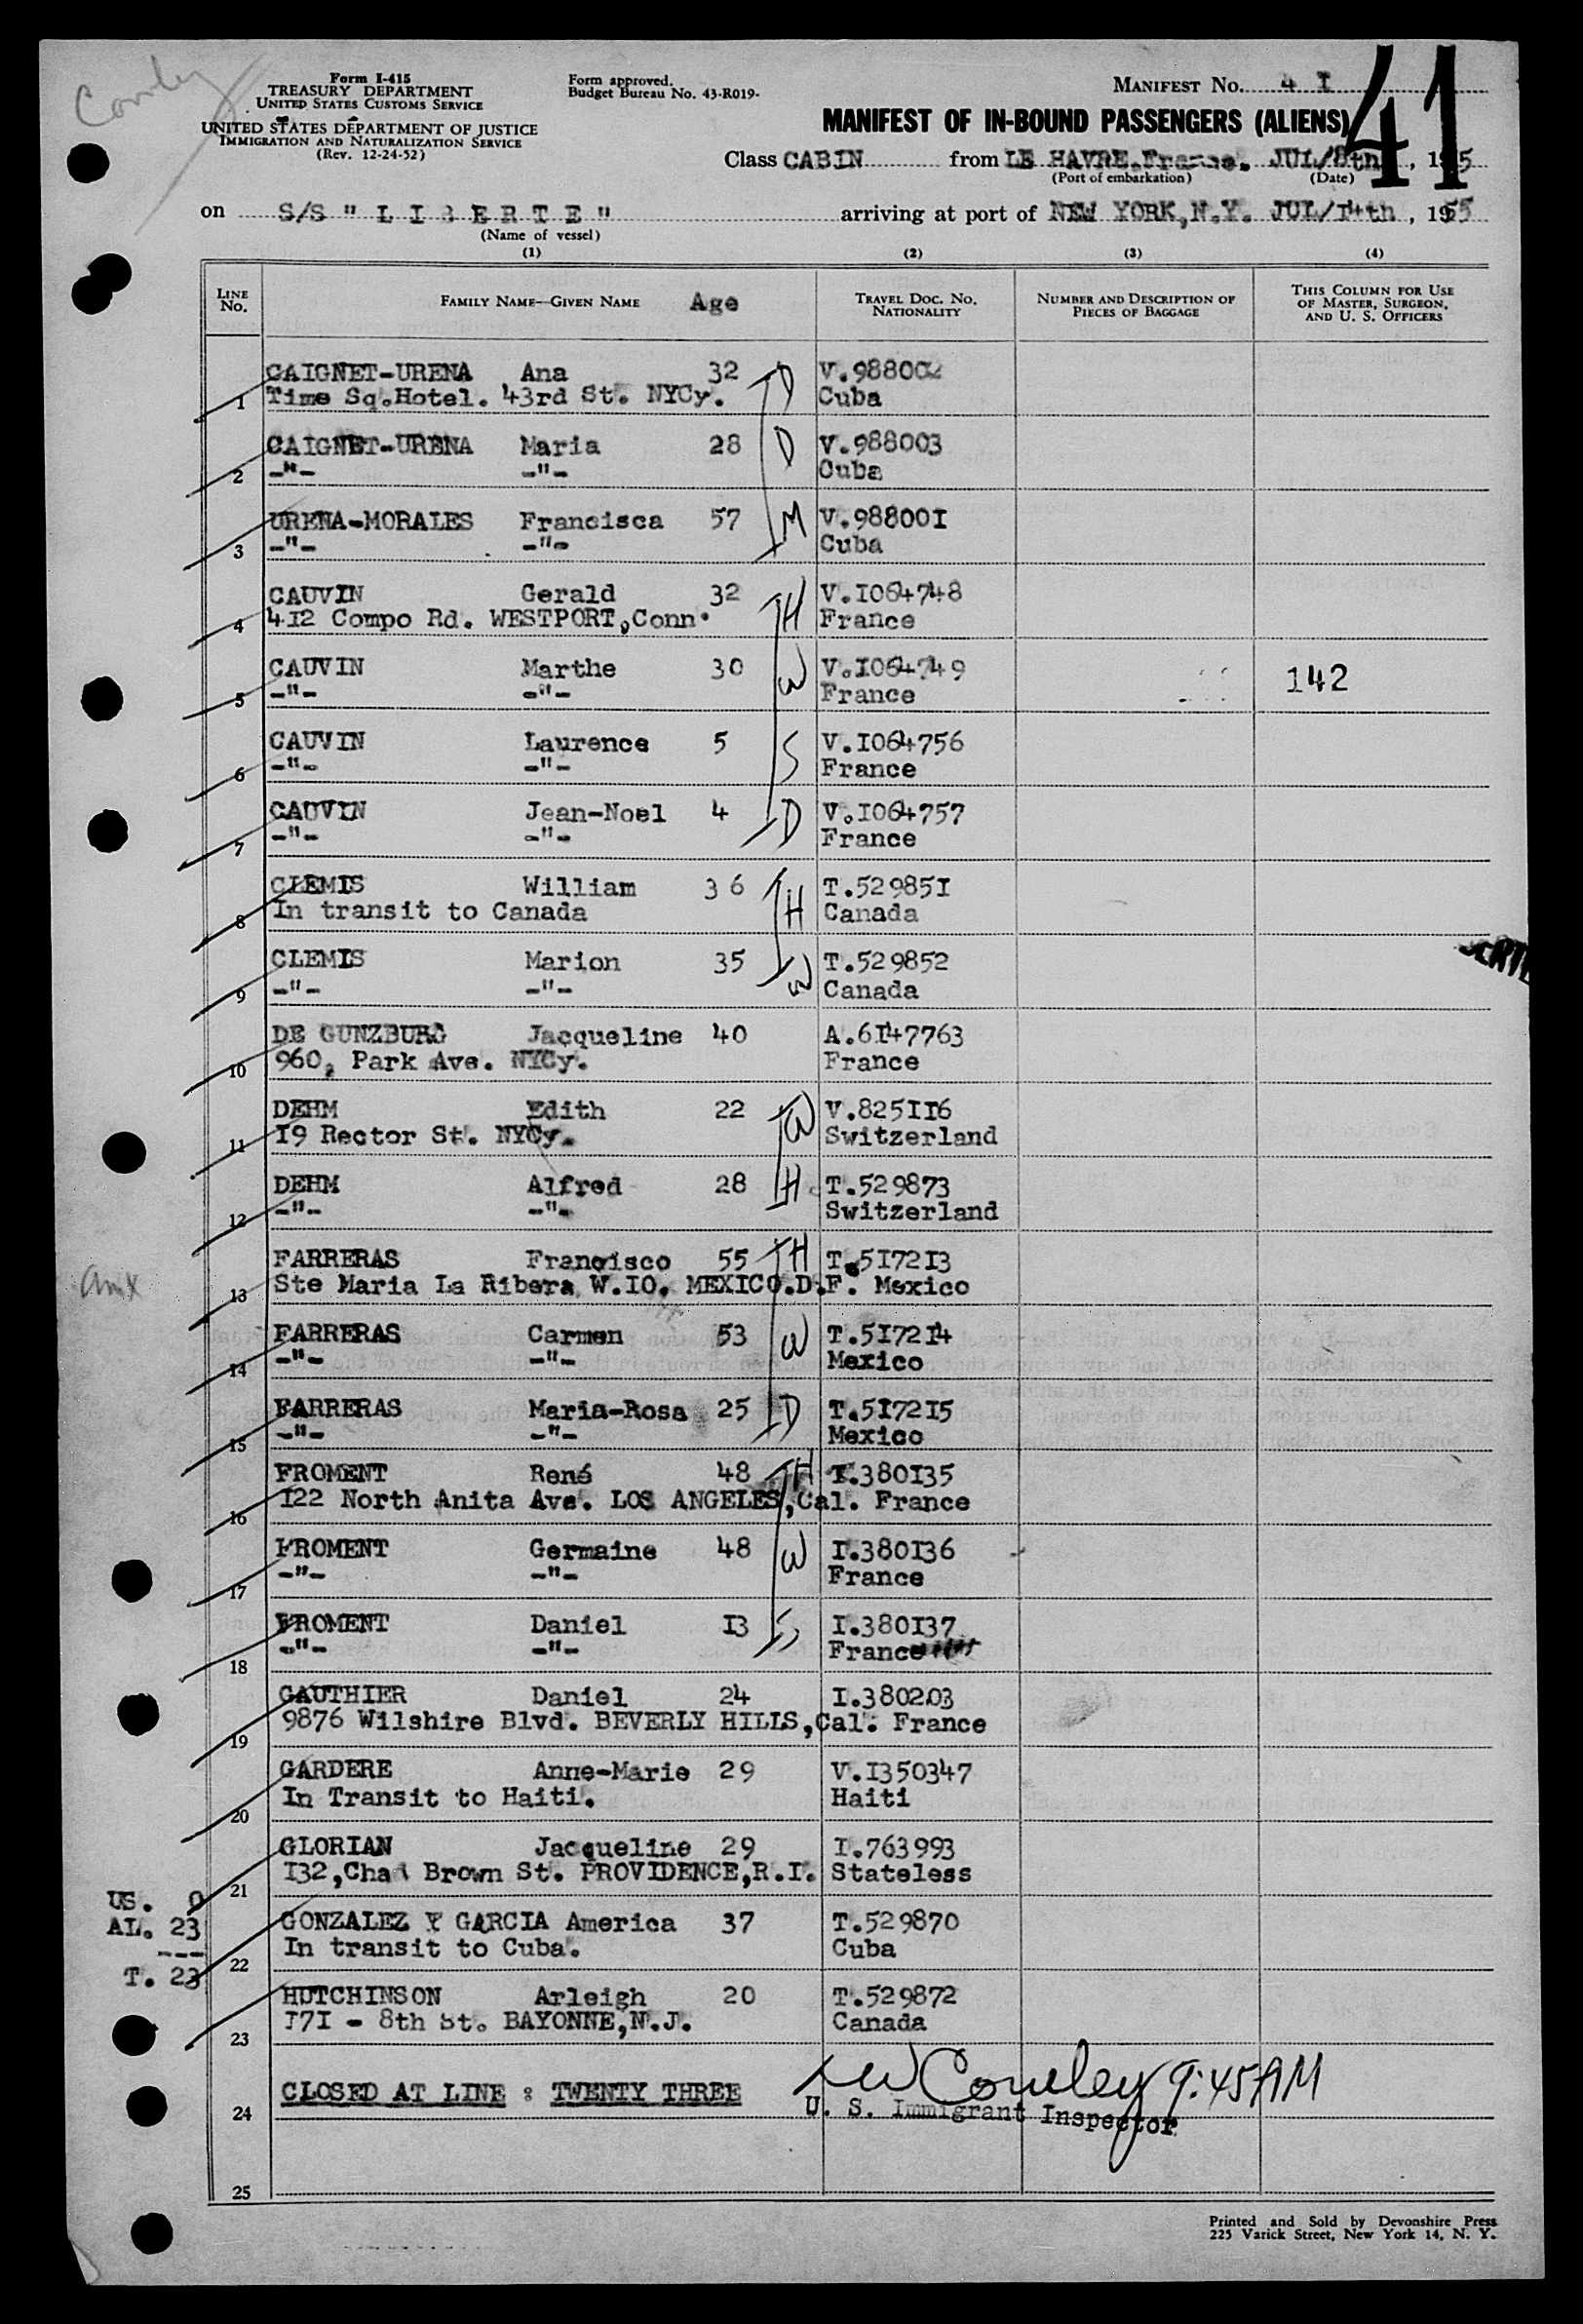 Cowley
Form I-415
TREASURY DEPARTMENT
UNITED STATES CUSTOMS SERVICE
UNITED STATES DEPARTMENT OF JUSTICE
IMMIGRATION AND NATURALIZATION SERVICE
(Rev. 12-24-52)
Form approved.
Budget Bureau No. 43-R019-
MANIFEST No. 4 I
41
MANIFEST OF IN-BOUND PASSENGERS (ALIENS)
Class CABIN from LE HAVRE.France. JUL/8th, 1955
(Port of embarkation) (Date)
on S/S " L I B E R T E " arriving at port of NEW YORK,N.Y. JUL/I4th, 1955
(Name of vessel)
(1) (2) (3) (4)
LINE No. FAMILY NAME—GIVEN NAME Age TRAVEL DOC. NO. NATIONALITY NUMBER AND DESCRIPTION OF PIECES OF BAGGAGE THIS COLUMN FOR USE OF MASTER, SURGEON, AND U. S. OFFICERS
CAIGNET-URENA Ana 32 D V.988002
1 Time Sq.Hotel. 43rd St. NYCy. Cuba
CAIGNET-URENA Maria 28 D V.988003
2 -"- -"- Cuba
URENA-MORALES Francisca 57 M V.98800I
3 -"- -"- Cuba
CAUVIN Gerald 32 H V.I064748
4 4I2 Compo Rd. WESTPORT,Conn. France
CAUVIN Marthe 30 W V.I064749
5 -"- -"- France 142
CAUVIN Laurence 5 S V.I064756
6 -"- -"- France
CAUVIN Jean-Noel 4 D V.I064757
7 -"- -"- France
CLEMIS William 36 H T.52985I
8 In transit to Canada Canada
CLEMIS Marion 35 W T.529852
9 -"- -"- Canada
DE GUNZBURG Jacqueline 40 A.6I47763
10 960, Park Ave. NYCy. France
DEHM Edith 22 W V.825II6
11 I9 Rector St. NYCy. Switzerland
DEHM Alfred 28 H T.529873
12 -"- -"- Switzerland
FARRERAS Francisco 55 H T.5I72I3
13 Ste Maria La Ribera W.IO. MEXICO.D.F. Mexico
FARRERAS Carmen 53 W T.5I72I4
14 -"- -"- Mexico
FARRERAS Maria-Rosa 25 D T.5I72I5
15 -"- -"- Mexico
FROMENT René 48 H I.380I35
16 I22 North Anita Ave. LOS ANGELES,Cal. France
FROMENT Germaine 48 W I.380I36
17 -"- -"- France
FROMENT Daniel I3 S I.380I37
18 -"- -"- France
GAUTHIER Daniel 24 I.380203
19 9876 Wilshire Blvd. BEVERLY HILLS,Cal. France
GARDERE Anne-Marie 29 V.I350347
20 In Transit to Haiti. Haiti
GLORIAN Jacqueline 29 I.763993
21 I32,Chad Brown St. PROVIDENCE,R.I. Stateless
US. 0
AL. 23
---
T. 23
GONZALEZ Y GARCIA America 37 T.529870
22 In transit to Cuba. Cuba
HUTCHINSON Arleigh 20 T.529872
23 I7I - 8th St. BAYONNE,N.J. Canada
24 CLOSED AT LINE : TWENTY THREE
Cowley 9:45AM
U. S. Immigrant Inspector
25
Printed and Sold by Devonshire Press
225 Varick Street, New York 14, N. Y.